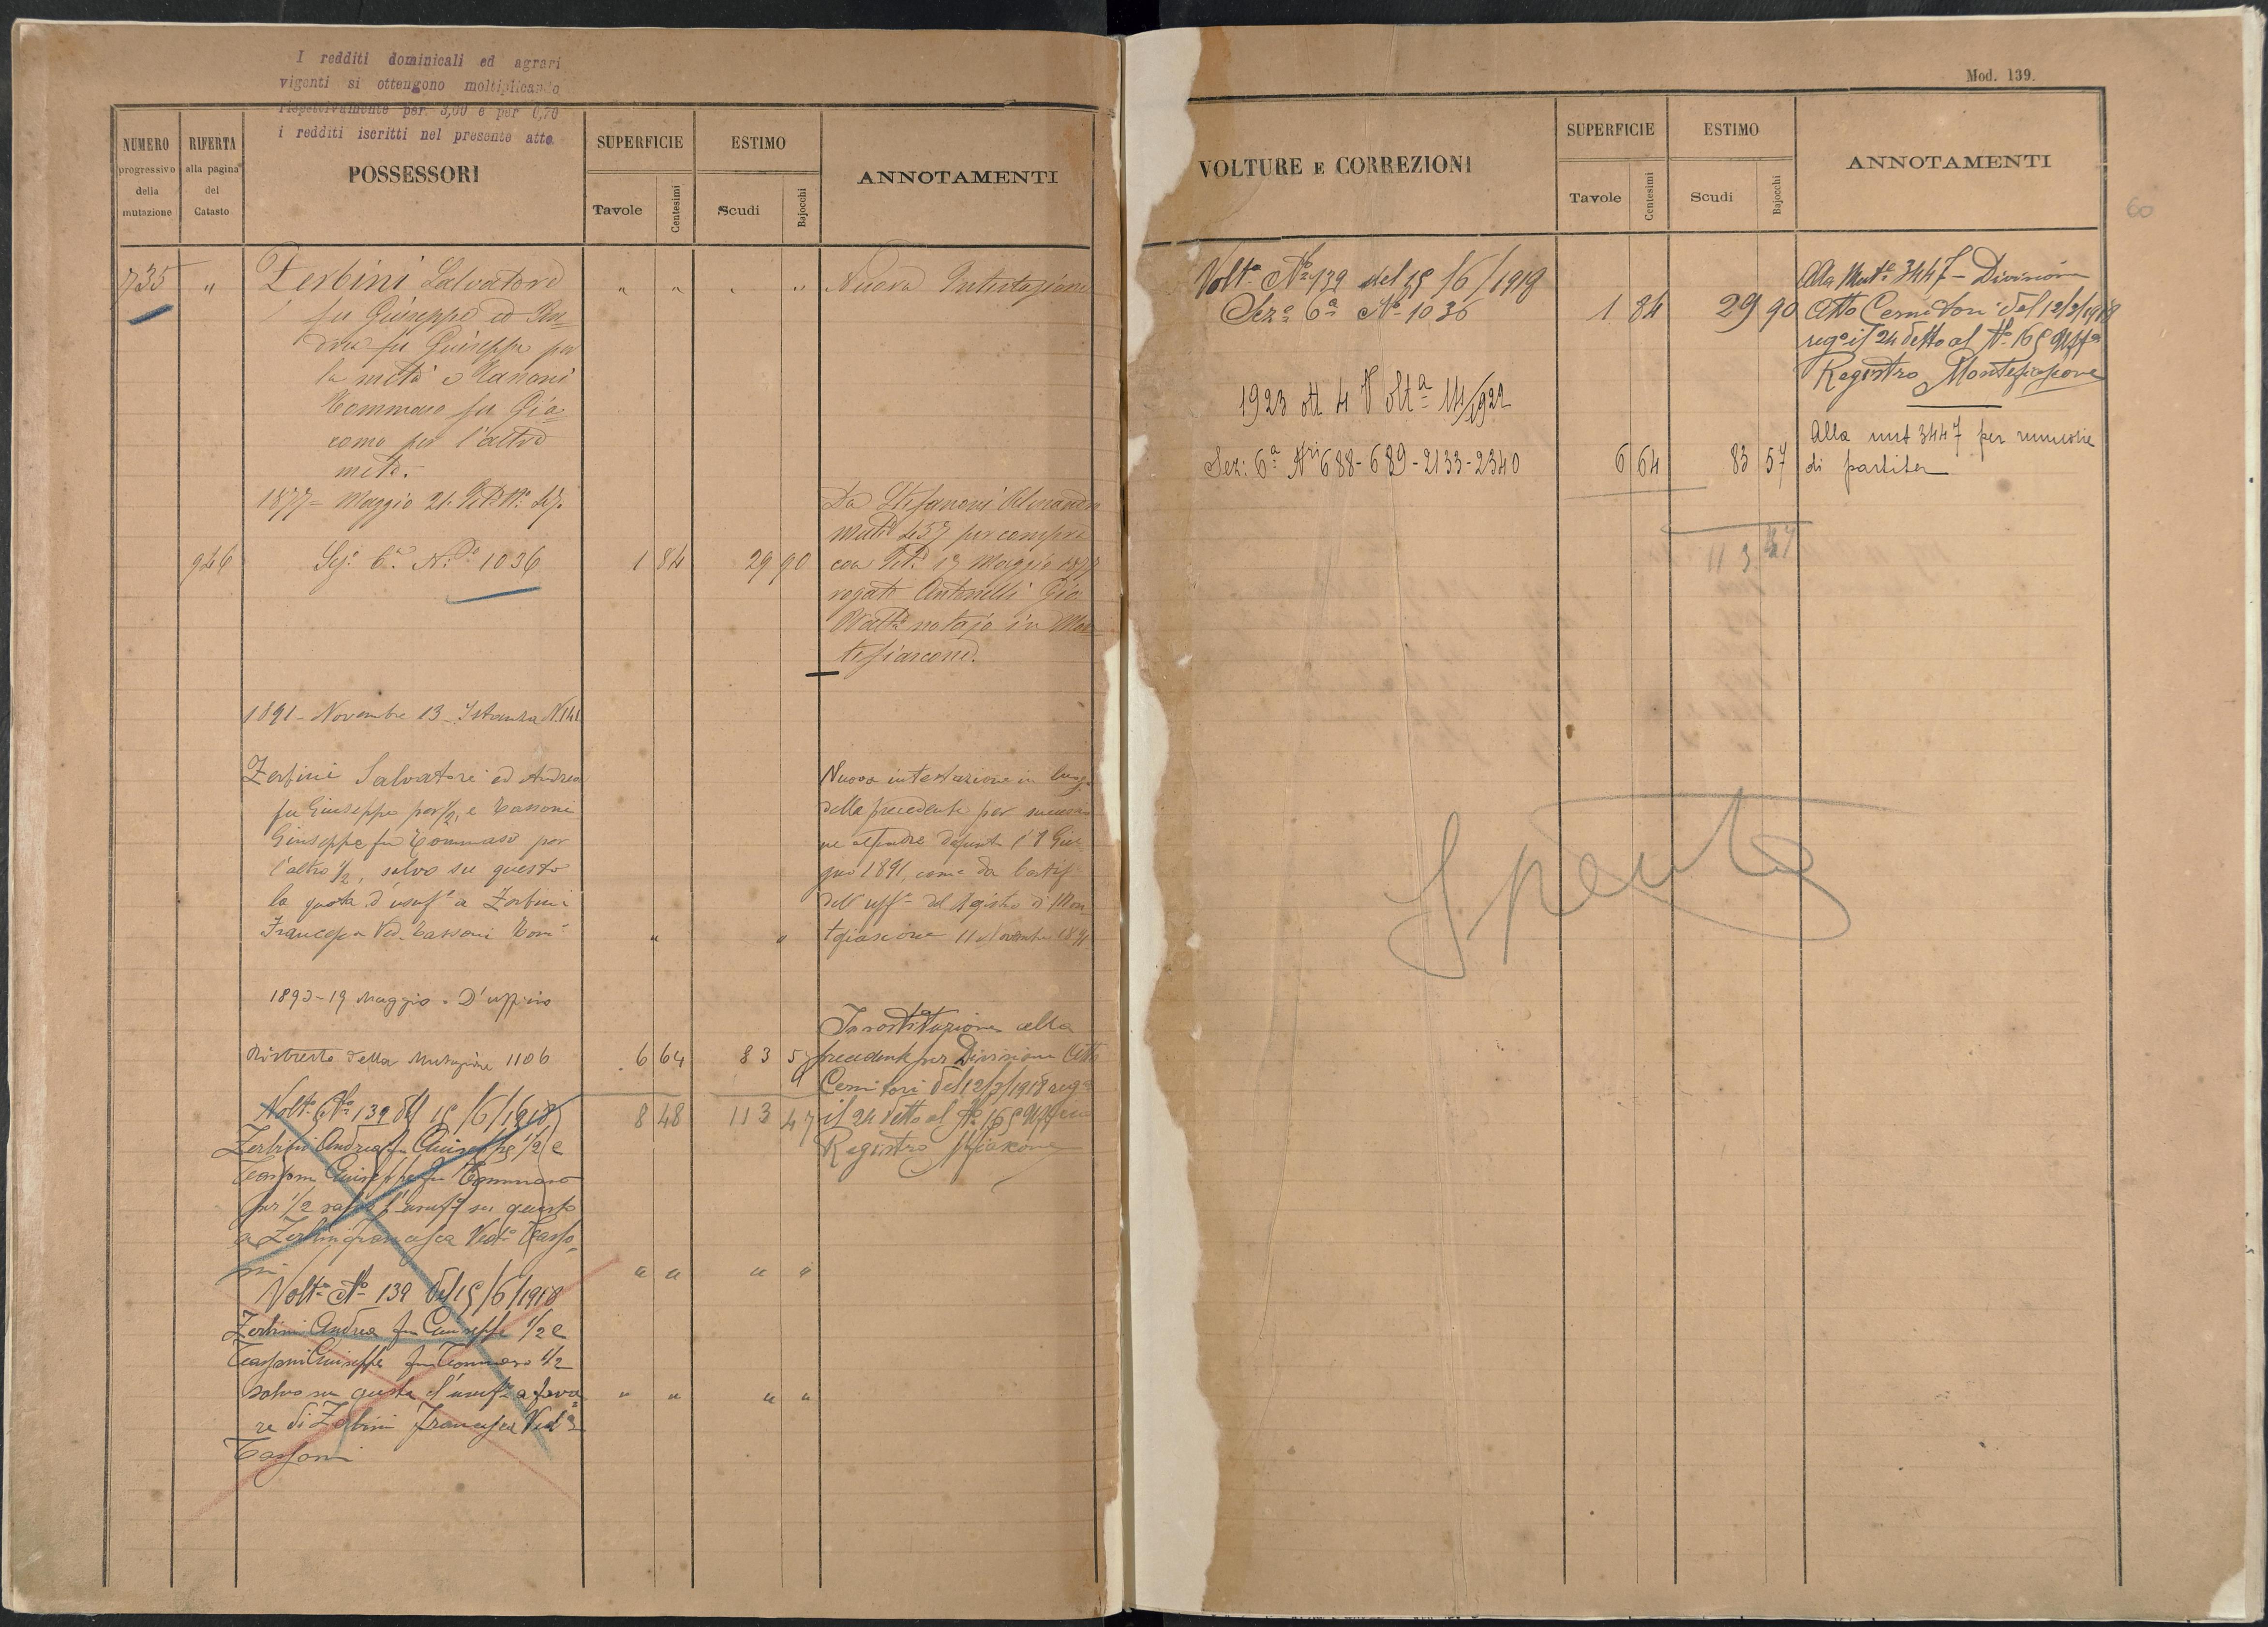 I redditi dominicali ed agrari
vigenti si ottengono moltiplicando
rispettivamente per 3,00 e per 0,70
i redditi iscritti nel presente atto
NUMERO
progressivo
della
mutazione
RIFERTA
alla pagina
del
Catasto
POSSESSORI
SUPERFICIE
Tavole
Centesimi
ESTIMO
Scudi
Bajocchi
ANNOTAMENTI
735 " Zerbini Salvatore " " " " Nuova Intestazione
fu Giuseppe ed An=
drea fu Giuseppe per
la metà e
Tommaso fu Gia=
como per l'altra
metà.
1877 = Maggio 21.
Da Stefanoni
per compra
946 Sez. 6a N.o 1036 1 84 29 90 con 13 Maggio 1877
rogato Antonelli Gio
Batta notajo in Mon
tefiascone.
1891 - Novembre 13 - Istanza N. 141
Zerbini Salvatore ed Andrea
fu Giuseppe per 1/2, e Tassoni
Giuseppe fu Tommaso per
l'altro 1/2, salvo su questo
la quota d'usuf.o a Zerbini
Francesca Ved. Tassoni " "
Nuova intestazione in luogo
della precedente per successio
ne al padre defunto l'1 Giu
gno 1891, come da Certif
dell'uff.o del Registro di Mon
tefiascone 11 Novembre 1891
1893 - 19 Maggio - D'ufficio
Ristretto della Mutazione 1106 6 64 83 57
8 48 113 47
In sostituzione alla
precedente per Divisione Atto
Cernitori del 12/3/1918 reg.o
il 24 detto al No 165 Uff
Registro Mfiascone
Volt.a No 139 del 15/6/1918
Zerbini Andrea fu Giuseppe 1/2 e
Tassoni Giuseppe fu Tommaso
per 1/2 salvo l'usuf.o su questo
a Zerbini Francesca Ved.a Tasso=
ni " " " "
Volt.a No 139 del 15/6/1918
Zerbini Andrea fu Giuseppe 1/2 e
Tassoni Giuseppe fu Tommaso 1/2
salvo su questo l'usuf.o a favo= " " " "
re di Zerbini Francesca Ved.a
Tassoni
Mod. 139.
60
VOLTURE E CORREZIONI
SUPERFICIE
Tavole
Centesimi
ESTIMO
Scudi
Bajocchi
ANNOTAMENTI
Volt.a No 139 del 15/6/1919
Sez.e 6a No 1036 1 84 29 90
Alla Mut.e 3447 - Divisione
Atto Cernitori del 12/3/1918
reg.o il 24 detto al No 165 Uff.o
Registro Montefiascone
1923 ott 4 Volt.a 14/1922
Sez: 6a Nri 688-689-2133-2340 6 64 83 57
Alla mut 3447 per riunione
di partita
113 47
Spenta